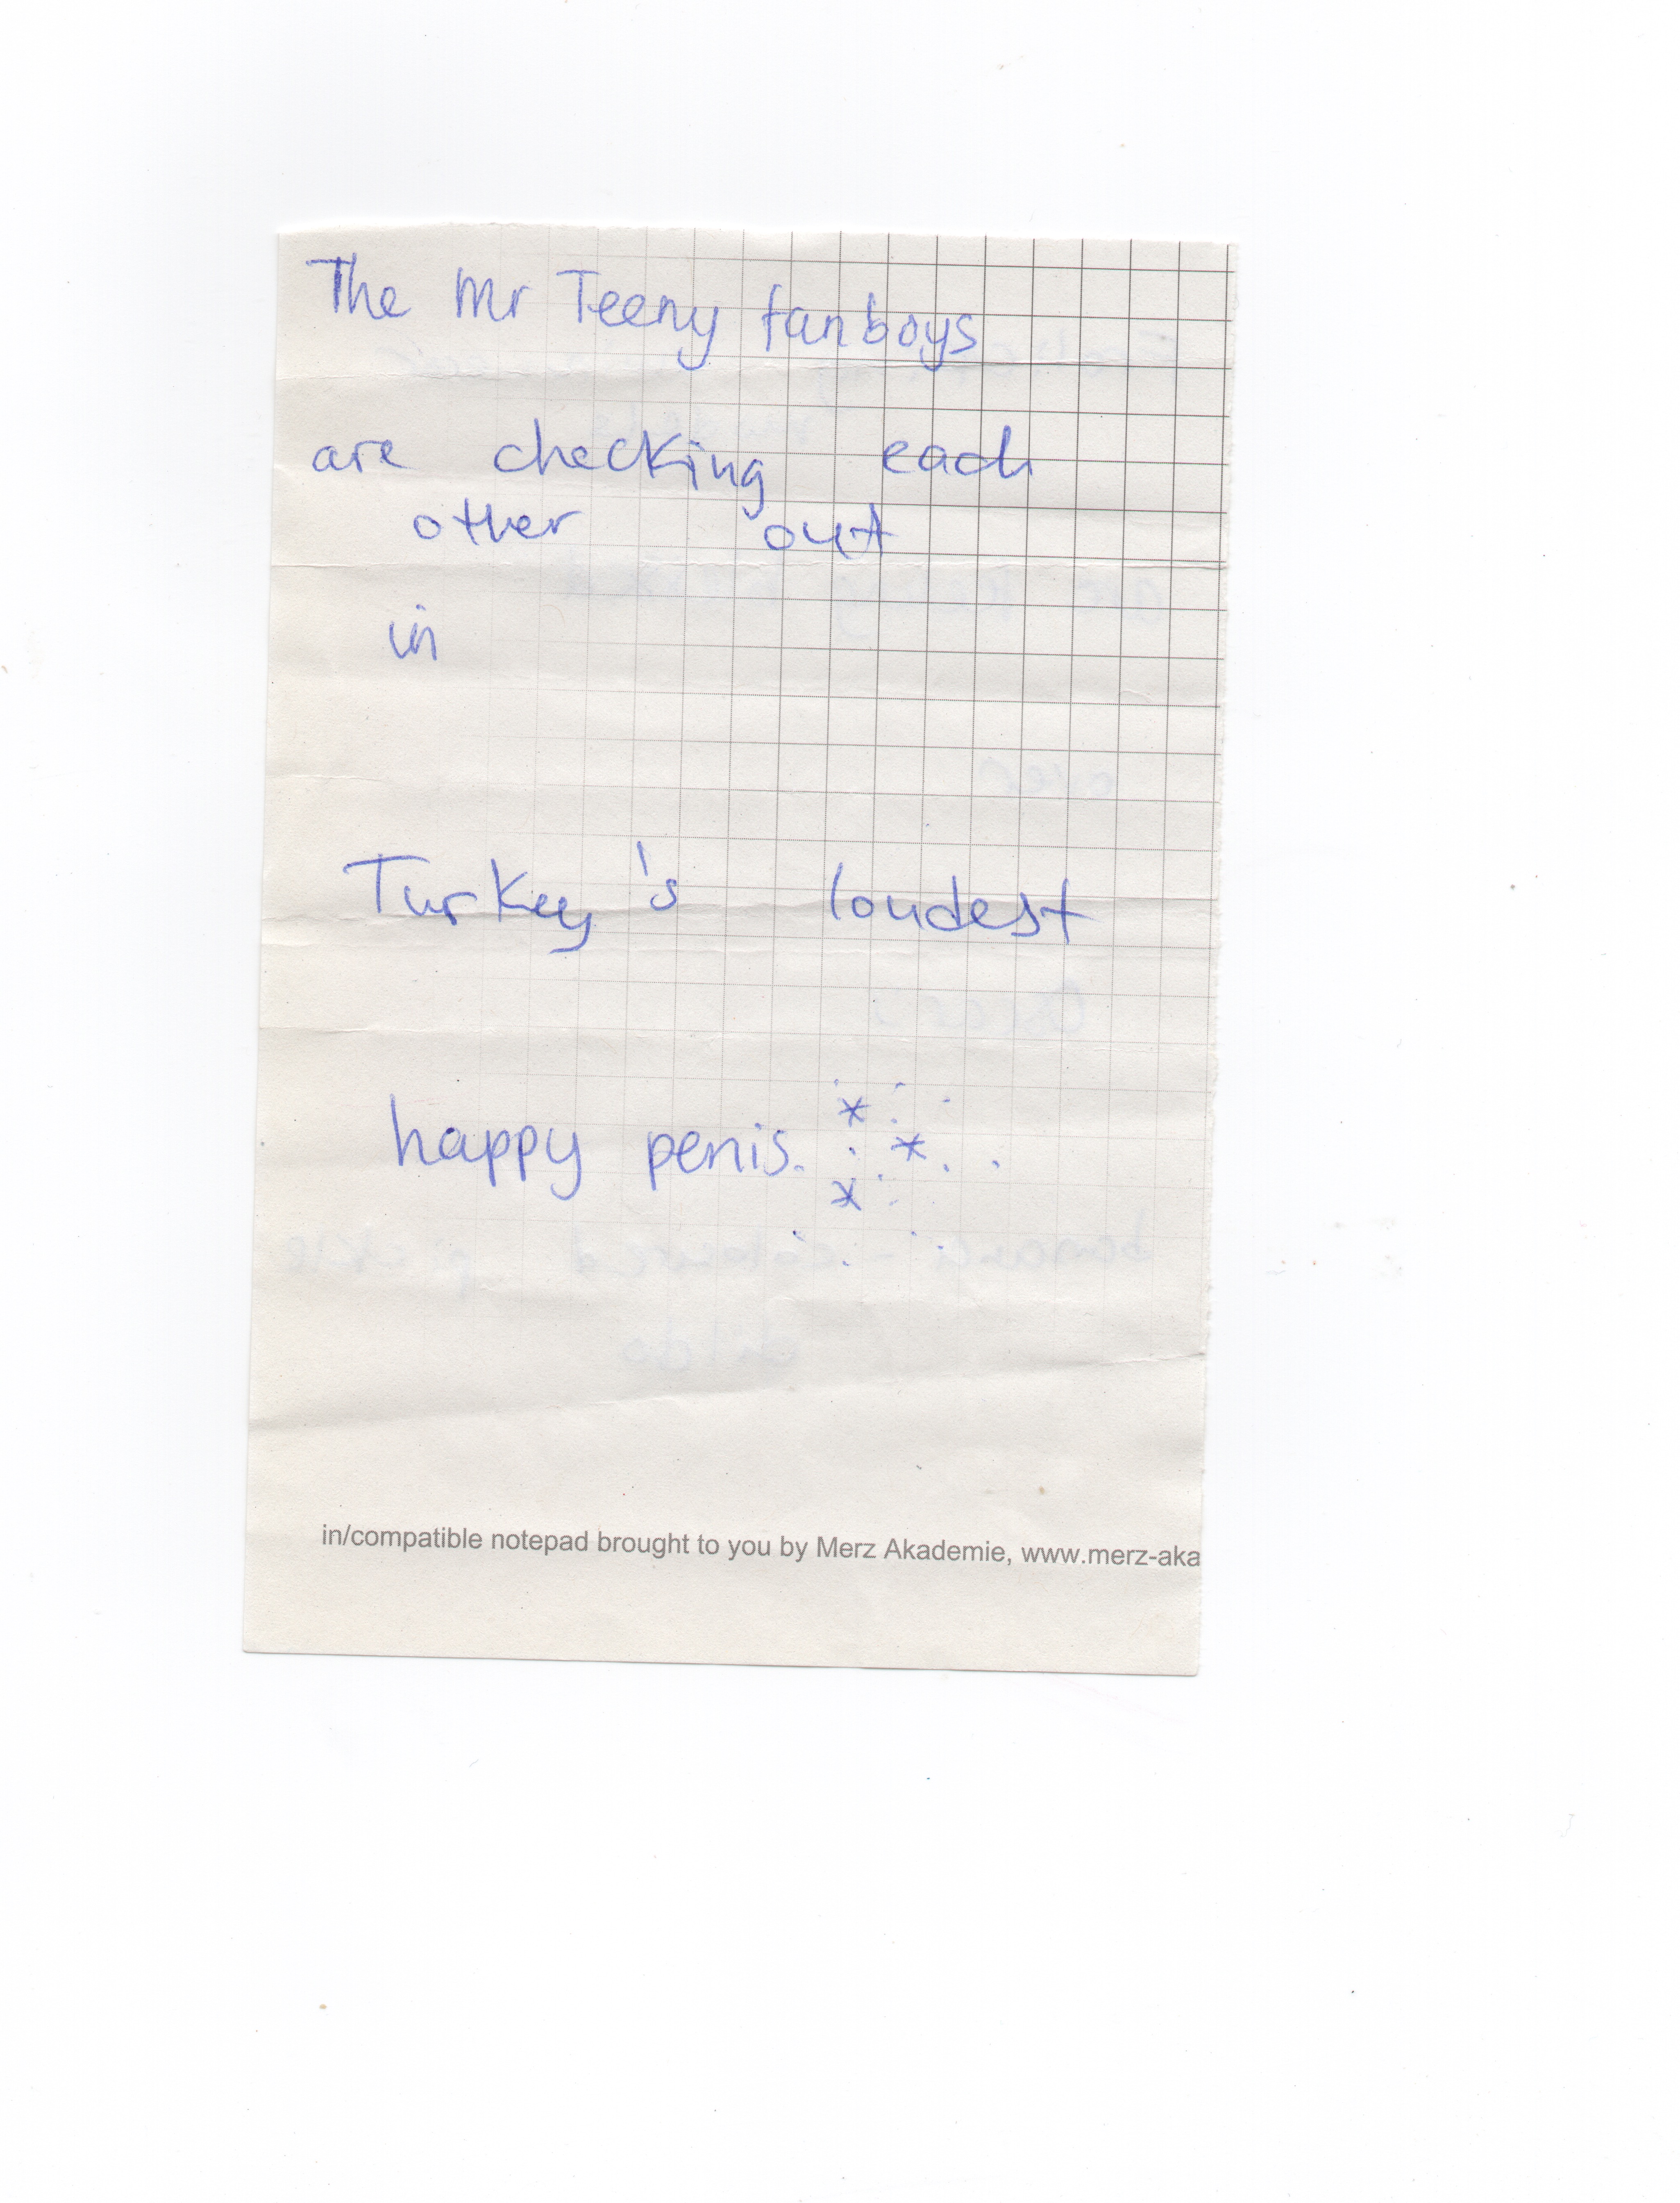 The Mr Teeny fanboys
are checking each
other out
in
Turkey's loudest
happy penis.
in/compatible notepad brought to you by Merz Akademie, www.merz-aka